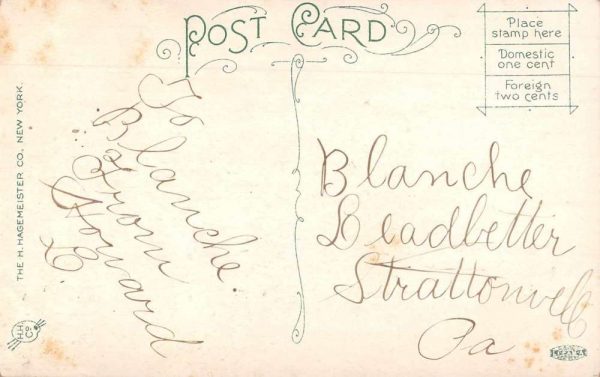 POST CARD
Place
stamp here
Domestic
one cent
Foreign
two cents
THE H. HAGEMEISTER CO., NEW YORK.
To
Blanche.
From
Howard
L
Blanche
Leadbetter
Strattonville
Pa
H.H.
Co.